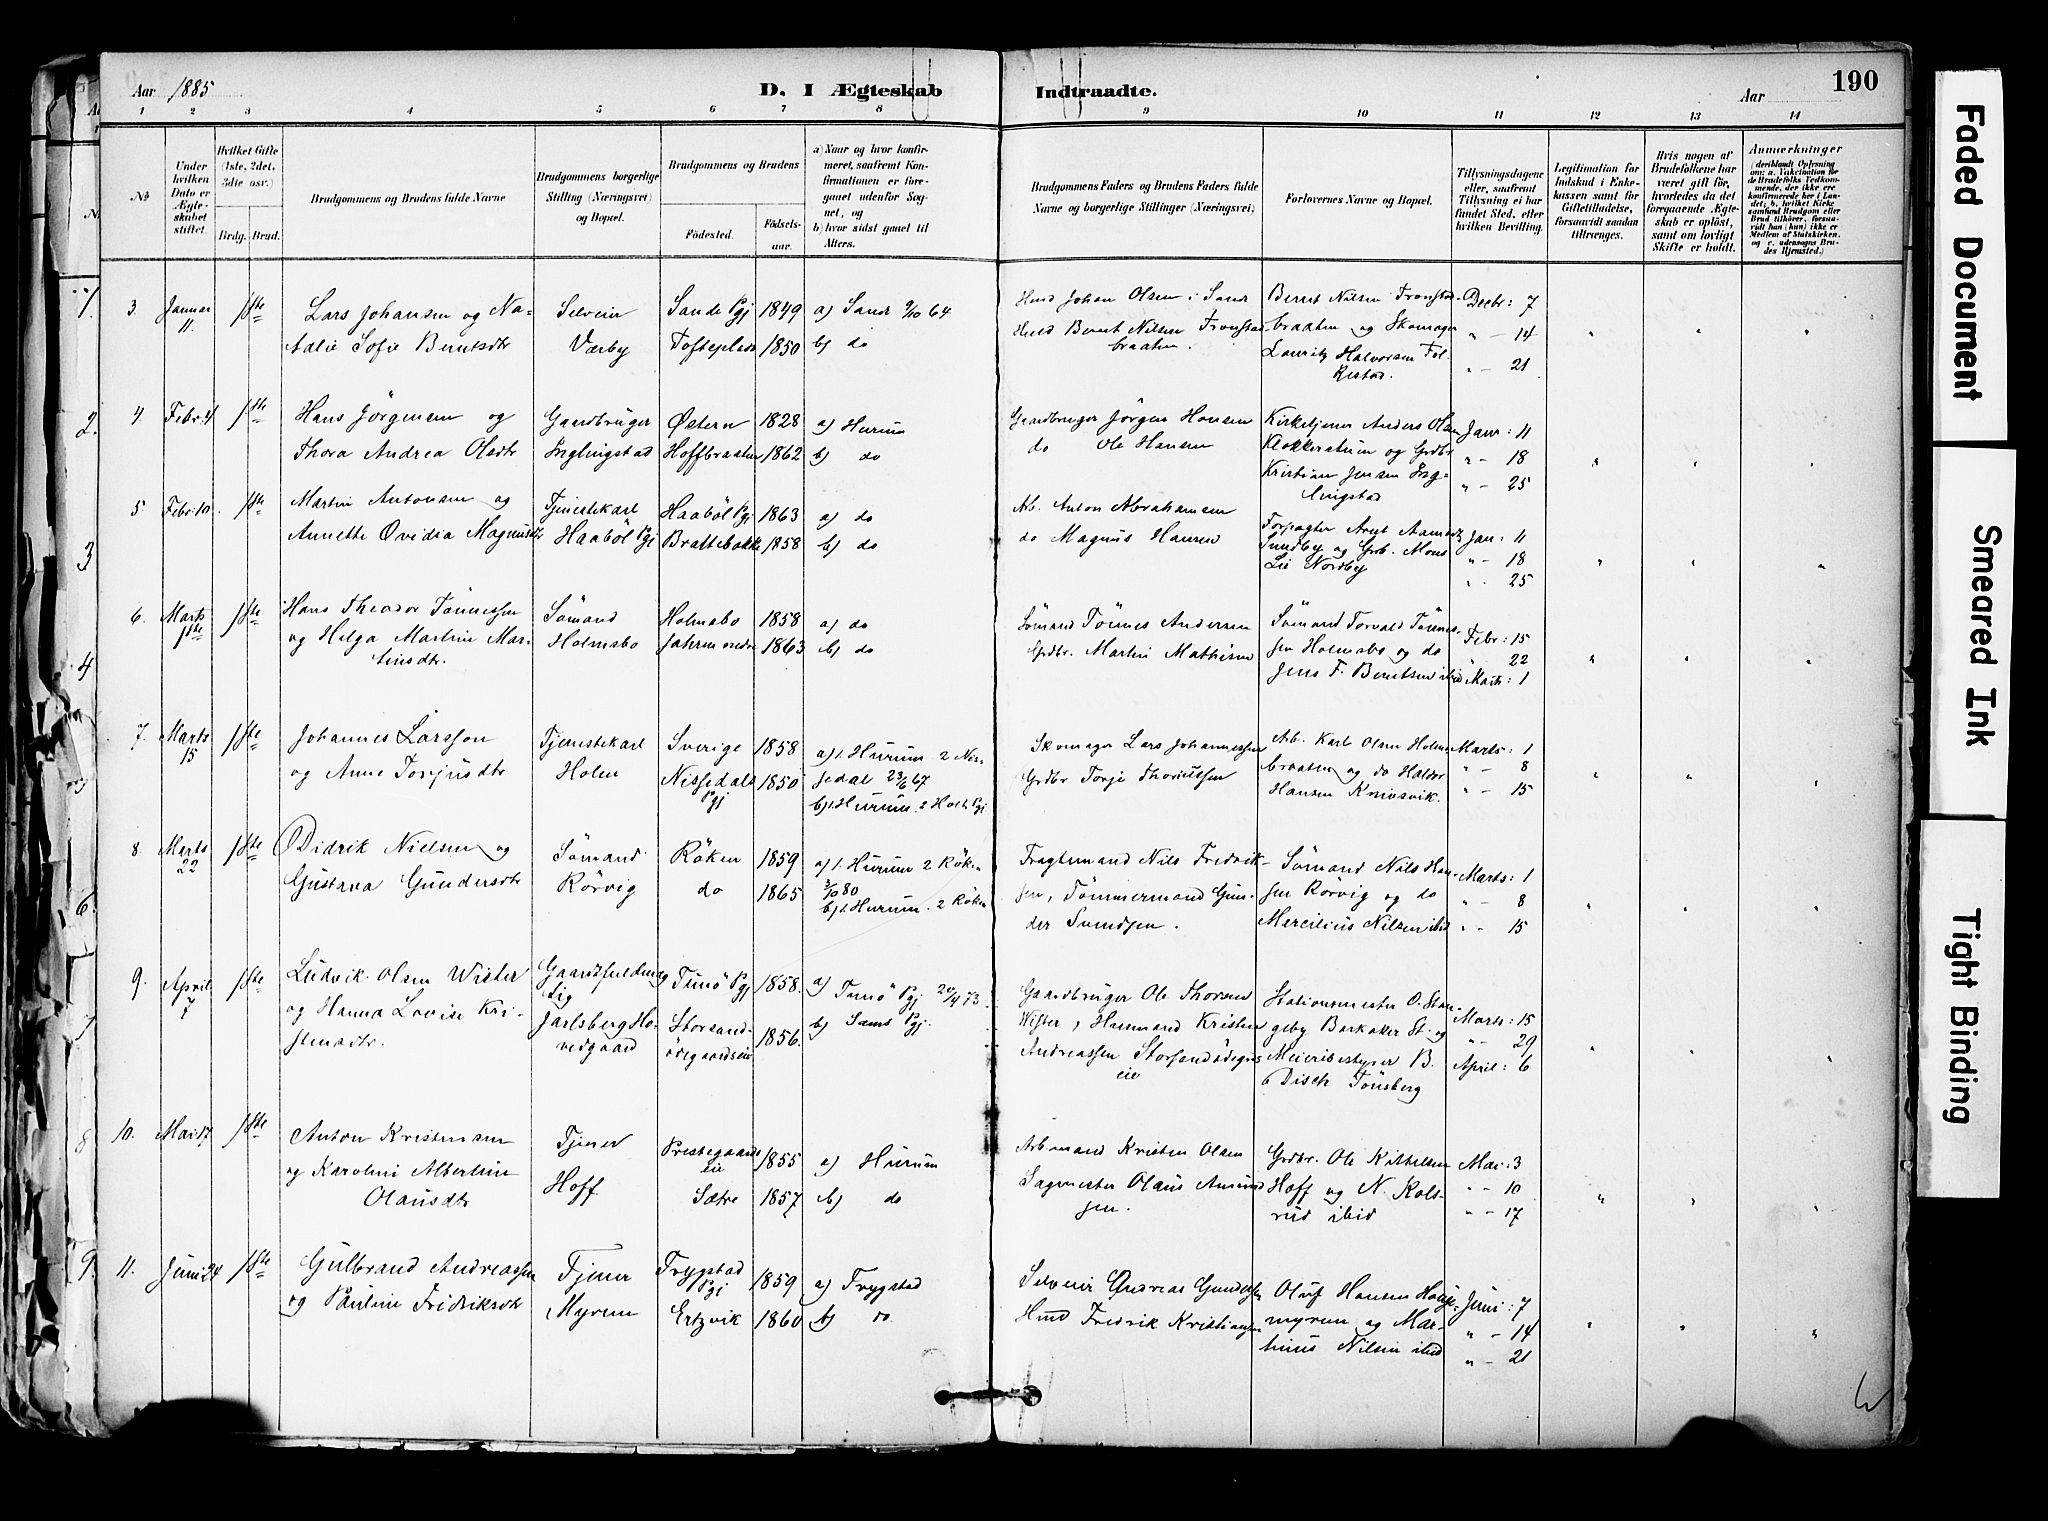 Aar 1885 D. I Ægteskab Indtraadte. Aar 190
1 2 3 4 5 6 7 8 9 10 11 12 13 14
No
Under hvilken Dato er Ægteskabet stiftet.
Hvilket Gifte (1ste, 2det, 3die osv.)
Brdg. Brud.
Brudgommens og Brudens fulde Navne
Brudgommens borgerlige Stilling (Næringsvei) og Bopæl.
Brudgommens og Brudens
Födested. Födselsaar.
a) Naar og hvor konfirmeret, saafremt Konfirmationen er foregaaet udenfor Sognet, og
b) hvor sidst gaaet til Alters.
Brudgommens Faders og Brudens Faders fulde Navne og borgerlige Stillinger (Næringsvei)
Forlovernes Navne og Bopæl.
Tillysningsdagene eller, saafremt Tillysning ei har fundet Sted, efter hvilken Bevilling.
Legitimation for Indskud i Enkekassen samt for Giftetilladelse, forsaavidt saadan tiltrænges.
Hvis nogen af Brudefolkene har været gift för, hvorledes da det foregaaende Ægteskab er oplöst, samt om lovligt Skifte er holdt.
Anmærkninger
(deriblandt Oplysning om: a. Vakcination for de Brudefolks Vedkommende, der ikke ere konfirmerede her i Landet; b. hvilket Kirkesamfund Brudgom eller Brud tilhörer, forsaavidt han (hun) ikke er Medlem af Statskirken, og c. udensogns Brudes Hjemsted.)
3. Januar 11. 1ste
Lars Johansen og Na-
talie Sofie Berntsdtr
Selveier
Værby
Sande Pgj 1849
Tofteplads 1850
a) Sande 9/10 64
b) do
Husd Johan Olsen i Sande
Husd Bernt Nilsen Tronstad
braaten.
Bernt Nilsen Tronstad-
braaten og Skomager
Lauritz Halvorsen Fol-
kestad.
Decbr: 7
" - 14
" - 21
4. Febr: 4 1ste
Hans Jörgensen og
Thora Andrea Olsdtr
Gaardbruger
Englingstad
Østern 1828
Hoffbraaten 1862
a) Hurum
b) do
Gaardbruger Jörgen Hansen
do Ole Hansen
Kirketjener Anders Olsen
Klokkerstuen og Grdbr
Kristian Jensen Eng-
lingstad
Janr: 11
" - 18
" - 25
5 Febr: 10 1ste
Martin Antonsen og
Annette Ovidia Magnusdtr
Tjenestekarl
Haaböl Pgj
Haaböl Pgj 1863
Brattebakke 1858
a) do
b) do
Arb. Anton Abrahamsen
do Magnus Hansen
Forpagter Arnt Aamodt
Sundby og Grb. Mons
Lie Nordby
Jan: 11
" - 18
" - 25
6. Marts 1ste 1ste
Hans Theodor Tönnessen
og Helga Martine Mar-
tinsdtr.
Sömand
Holmsbo
Holmsbo 1858
Jahren nedre 1863
a) do
b) do
Sömand Tönnes Andersen
Grdbr. Martin Mathisen
Sömand Torvald Tönnes-
sen Holmsbo og do
Jens F. Berntsen ibid
Febr: 15
" 22
Marts: 1
7. Marts 15 1ste
Johannes Larsson
og Anne Torjusdtr
Tjenestekarl
Holm
Sverige 1858
Nissedals Pgj 1850
a) 1. Hurum 2 Nis-
sedal 23/6 67
b) 1. Hurum. 2 Holt Pgj
Skomager Lars Johannessen
Grdbr Torje Thoriussen
Arb. Karl Olsen Holm-
braaten og do Halvor
Hansen Knivsvik.
Marts: 1
" - 8
" - 15
8. Marts 22 1ste
Didrik Nielsen og
Gustava Gundersdtr
Sömand
Rörvig
Röken 1859
do 1865
a) 1. Hurum 2 Röken
3/10 80
b) 1. Hurum. 2 Röken
Fragtemand Nils Fredrik-
sen, Tömmermand Gun-
der Svendsen.
Sömand Nils Han-
sen Rörvig og do
Marcilius Nilsen ibid
Marts: 1
" - 8
" - 15
9. April 7 1ste
Ludvik Olsen Wister
og Hanna Lovise Kri-
stensdtr.
Gaardsfuldmæg
tig
Jarlsberg Ho-
vedgaard
Tunö Pgj 1858.
Storsand-
ödegaardseie 1856.
a) Tunö Pgj 20/4 73
b) Sams Pgj.
Gaardbruger Ole Thorsen
Wister, Husmand Kristen
Andreassen Storsandödegrds
eie
Stationsmester O. Stan-
geby Barkaker St. og
Meieribestyrer B.
Disch Tönsberg
Marts: 15
" - 29
April: 6
10. Mai 17 1ste
Anton Kristensen
og Karoline Albertine
Olausdtr
Tjener
Hoff
Prestegaards
eie 1855
Sætre 1857
a) Hurum
b) do
Arbmand Kristen Olsen
Sagmester Olaus Amund-
sen.
Grdbr. Ole Kittelsen
Hoff og N. Rols-
rud ibid
Mai: 3
" - 10
" - 17
11. Juni 24 1ste
Gulbrand Andreassen
og Pauline Fridriksdtr
Tjener
Myren
Trygstad Pgj 1859
Ertzvik 1860
a) Trygstad
b) do.
Selveier Andreas Gundersen
Husd Fredrik Kristiansen
Oluf Hansen Hauge-
myren og Mar-
tinus Nilsen ibid
Juni: 7
" - 14
" - 21
1. 2. 3 4 5 6. 7 8 9.
Faded Document
Smeared Ink
Tight Binding